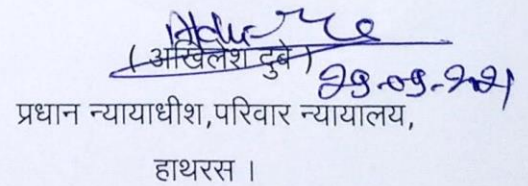 ( अखिलेश दुबे )
29-09-2021
प्रधान न्यायाधीश,परिवार न्यायालय,
हाथरस ।